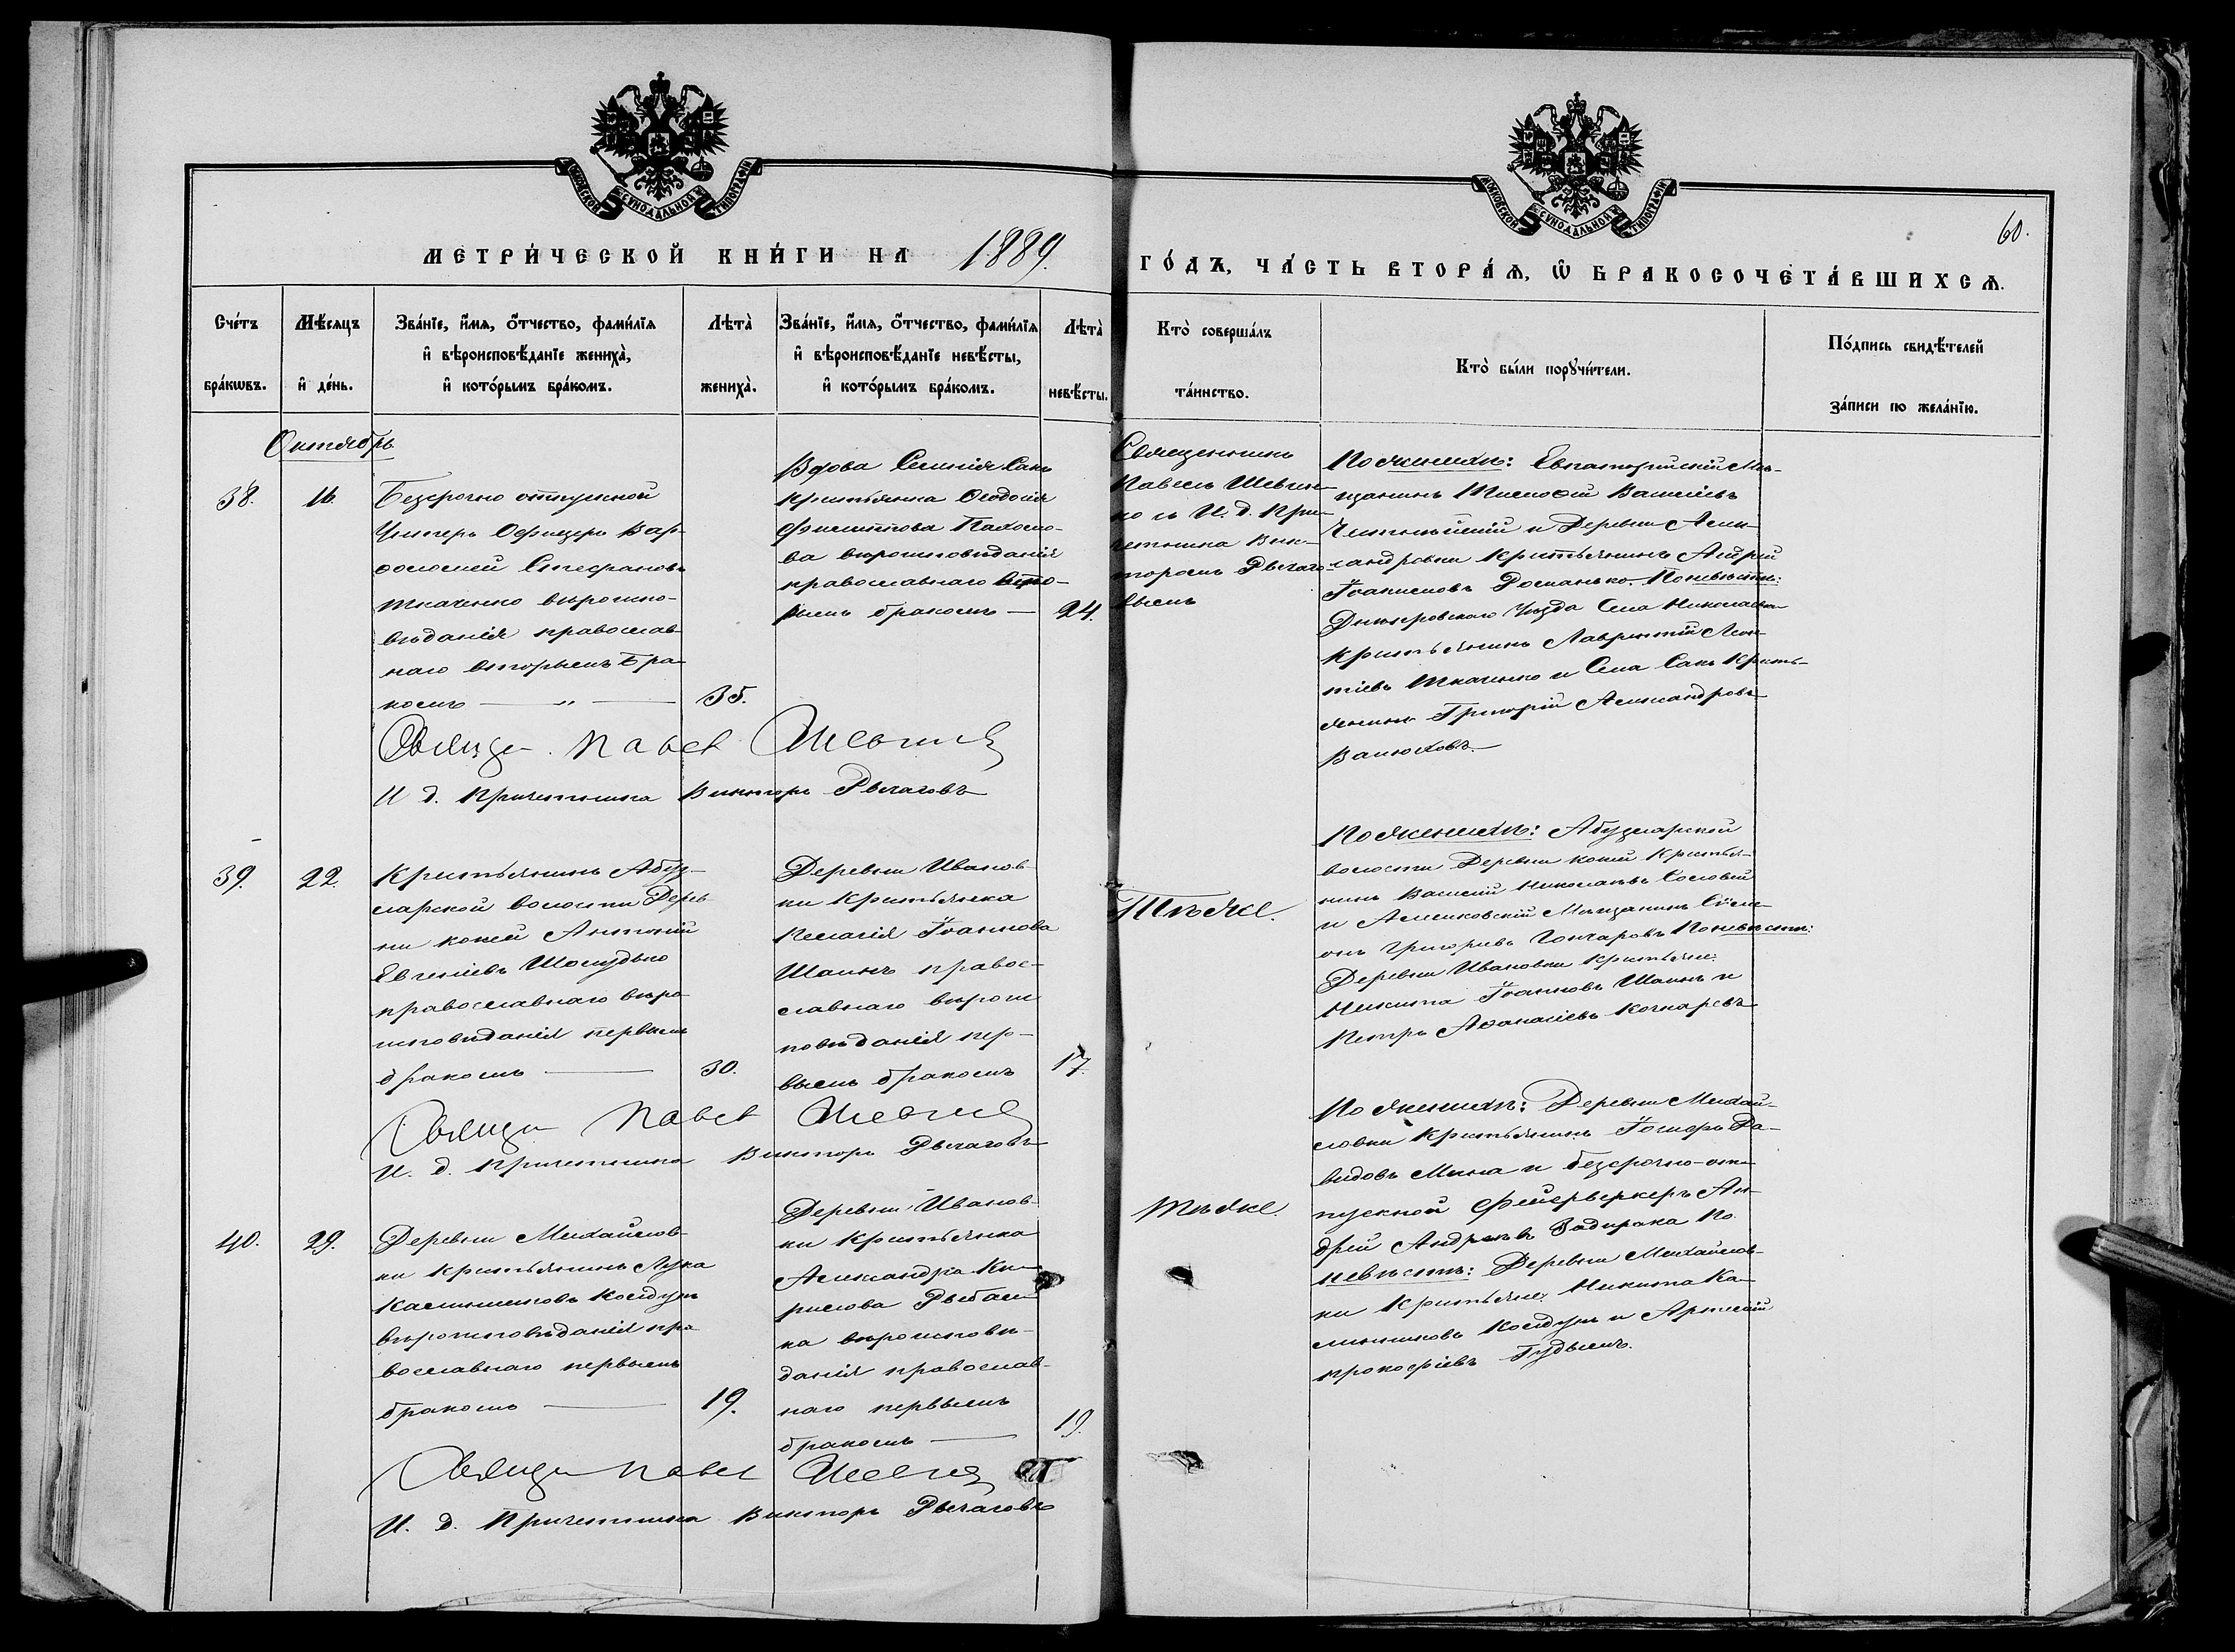 МОСКОВСКОЙ СѴНОДАЛЬНОЙ ТИПОГРАФІИ
МОСКОВСКОЙ СѴНОДАЛЬНОЙ ТИПОГРАФІИ
60.
МЕТРИ́ЧЕСКОЙ КНИ́ГИ НА 1889.
ГО́ДЪ, ЧА́СТЬ ВТОРА́Я, Ѿ БРАКОСОЧЕТА́ВШИХСЯ.
Сче́тъ бра́кѡвъ.
Мѣ́сяцъ и҆ де́нь.
Зва́нїе, и҆́мя, ѻ҆́тчество, фами́лїя
и҆ вѣроисповѣ́данїе жениха̀,
и҆ кото́рымъ бра́комъ.
Лѣта̀ жениха̀.
Зва́нїе, и҆́мя, ѻ҆́тчество, фами́лїя
и҆ вѣроисповѣ́данїе невѣ́сты,
и҆ кото́рымъ бра́комъ.
Лѣта̀ невѣ́сты.
Кто̀ соверша́лъ
та́инство.
Кто̀ бы́ли порꙋчи́тели.
По́дпись свидѣ́телей
за́писи по жела́нїю.
Октябрь
38.
16.
Безсрочно отпускной
Унтеръ Офицеръ Вар-
ѳоломей Стефановъ
Ткаченко вѣроиспо-
вѣданія православ-
наго вторымъ бра-
комъ — „ —
35.
Вдова Селенія Сакъ
крестьянка Ѳеодосія
Филиппова Пахомо-
ва вѣроисповѣданія
православнаго вто-
рымъ бракомъ —
24.
Священникъ
Павелъ Шевчен-
ко съ И. д. При-
четника Вик-
торомъ Рычаго-
вымъ
По женихѣ: Евпаторійскій Мѣ-
щанинъ Тимоѳей Васильевъ
и Деревни Алек-
сандровки крестьянинъ Андрей
Іоанновъ Романько. По невѣстѣ:
Днѣпровскаго Уѣзда Села Николаевки
крестьянинъ Лаврентій Леон-
тіевъ Ткаченко и Села Сакъ Кресть-
янинъ Григорій Александровъ
Священ. Павелъ Шевченко
И д. Причетника Викторъ Рычаговъ
39.
22.
Крестьянинъ Абуз-
ларской волости Дерев-
ни Конки Антоній
Евгеніевъ Шолудько
православнаго вѣро-
исповѣданія первымъ
бракомъ —
30.
Деревни Иванов-
ки Крестьянка
Пелагія Іоаннова
Шаинъ правос-
лавнаго вѣроис-
повѣданія пер-
вымъ бракомъ
17.
Тѣ же.
По женихѣ: Абузларской
волости Деревни Конки Крестья-
нинъ Василій Николаевъ Соловей
и Алешковскій Мѣщанинъ Сѷме-
онъ Григорьевъ Гончаровъ По невѣстѣ:
Деревни Ивановки Крестьяне:
Никита Іоанновъ Шаинъ и
Петръ Аѳанасіевъ Кочкаревъ
Священ Павелъ Шевченко
И. д. Причетника Викторъ Рычаговъ
40.
29.
Деревни Михайлов-
ки Крестьянинъ Лука
Калинниковъ Колдунъ
вѣроисповѣданія пра-
вославнаго первымъ
бракомъ —
19.
Деревни Иванов-
ки Крестьянка
Александра Ки-
рилова Рыбал-
ка вѣроисповѣ-
данія православ-
наго первымъ
бракомъ —
19.
Тѣ же.
По женихѣ: Деревни Михай-
ловки Крестьянинъ Іосифъ Да-
видовъ Мина и безсрочно-от-
пускной Фейерверкеръ Ан-
дрей Андреевъ Задирака По
невѣстѣ: Деревни Михайлов-
ки Крестьяне: Никита Ка-
линниковъ Колдунъ и Артемій
Прокофіевъ Гудымъ.
Священ Павелъ Шевченко
И. д. Причетника Викторъ Рычаговъ